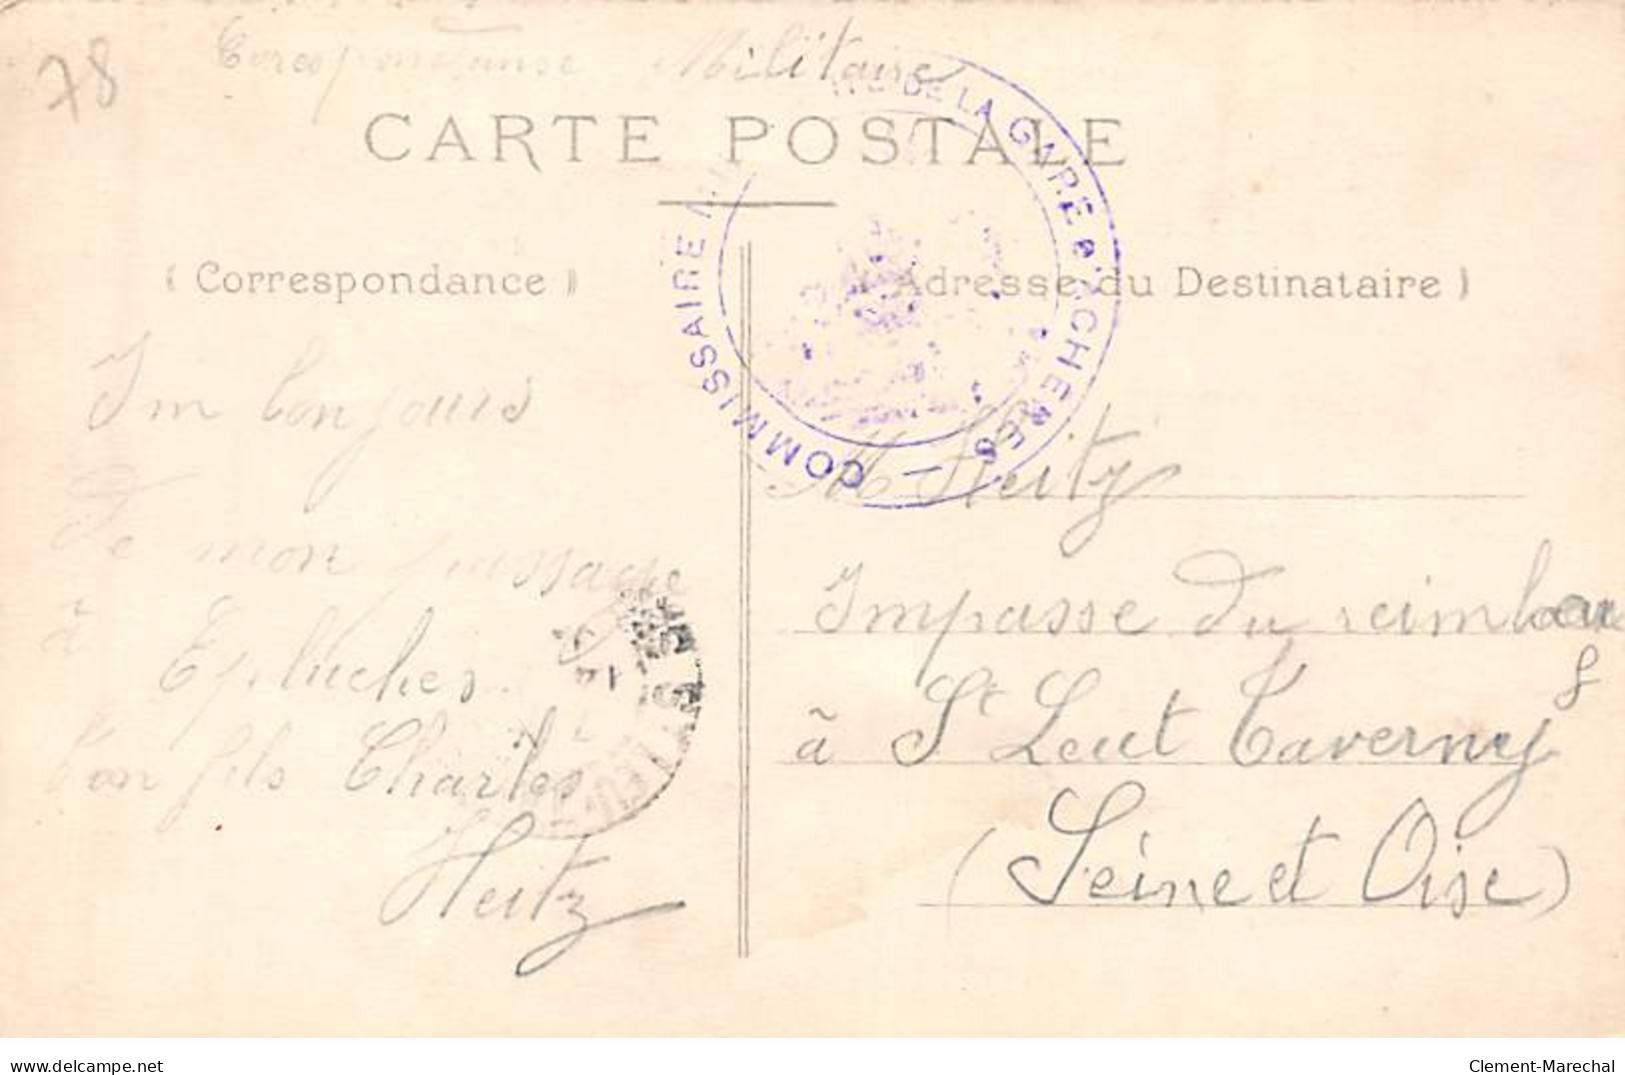 78
Corespondanse Militaire
CARTE POSTALE
COMMISSAIRE MILITAIRE DE LA GARE D'ACHERES
(Correspondance)
Adresse du Destinataire)
Im bonjours
De mon passage
à
Epluches
ton fils Charles
Heitz
14
M Heitz
Impasse du
à St Leut Taverny
(Seine et Oise)
delcampe.net
Clement-Marechal